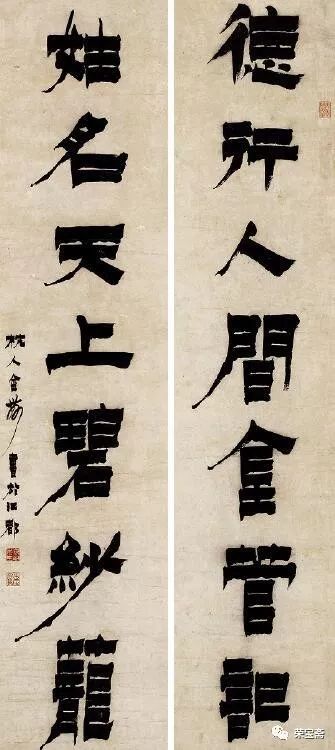 德行人間金管記
姓名天上碧紗籠
杭人金農書於江都
荣宝斋